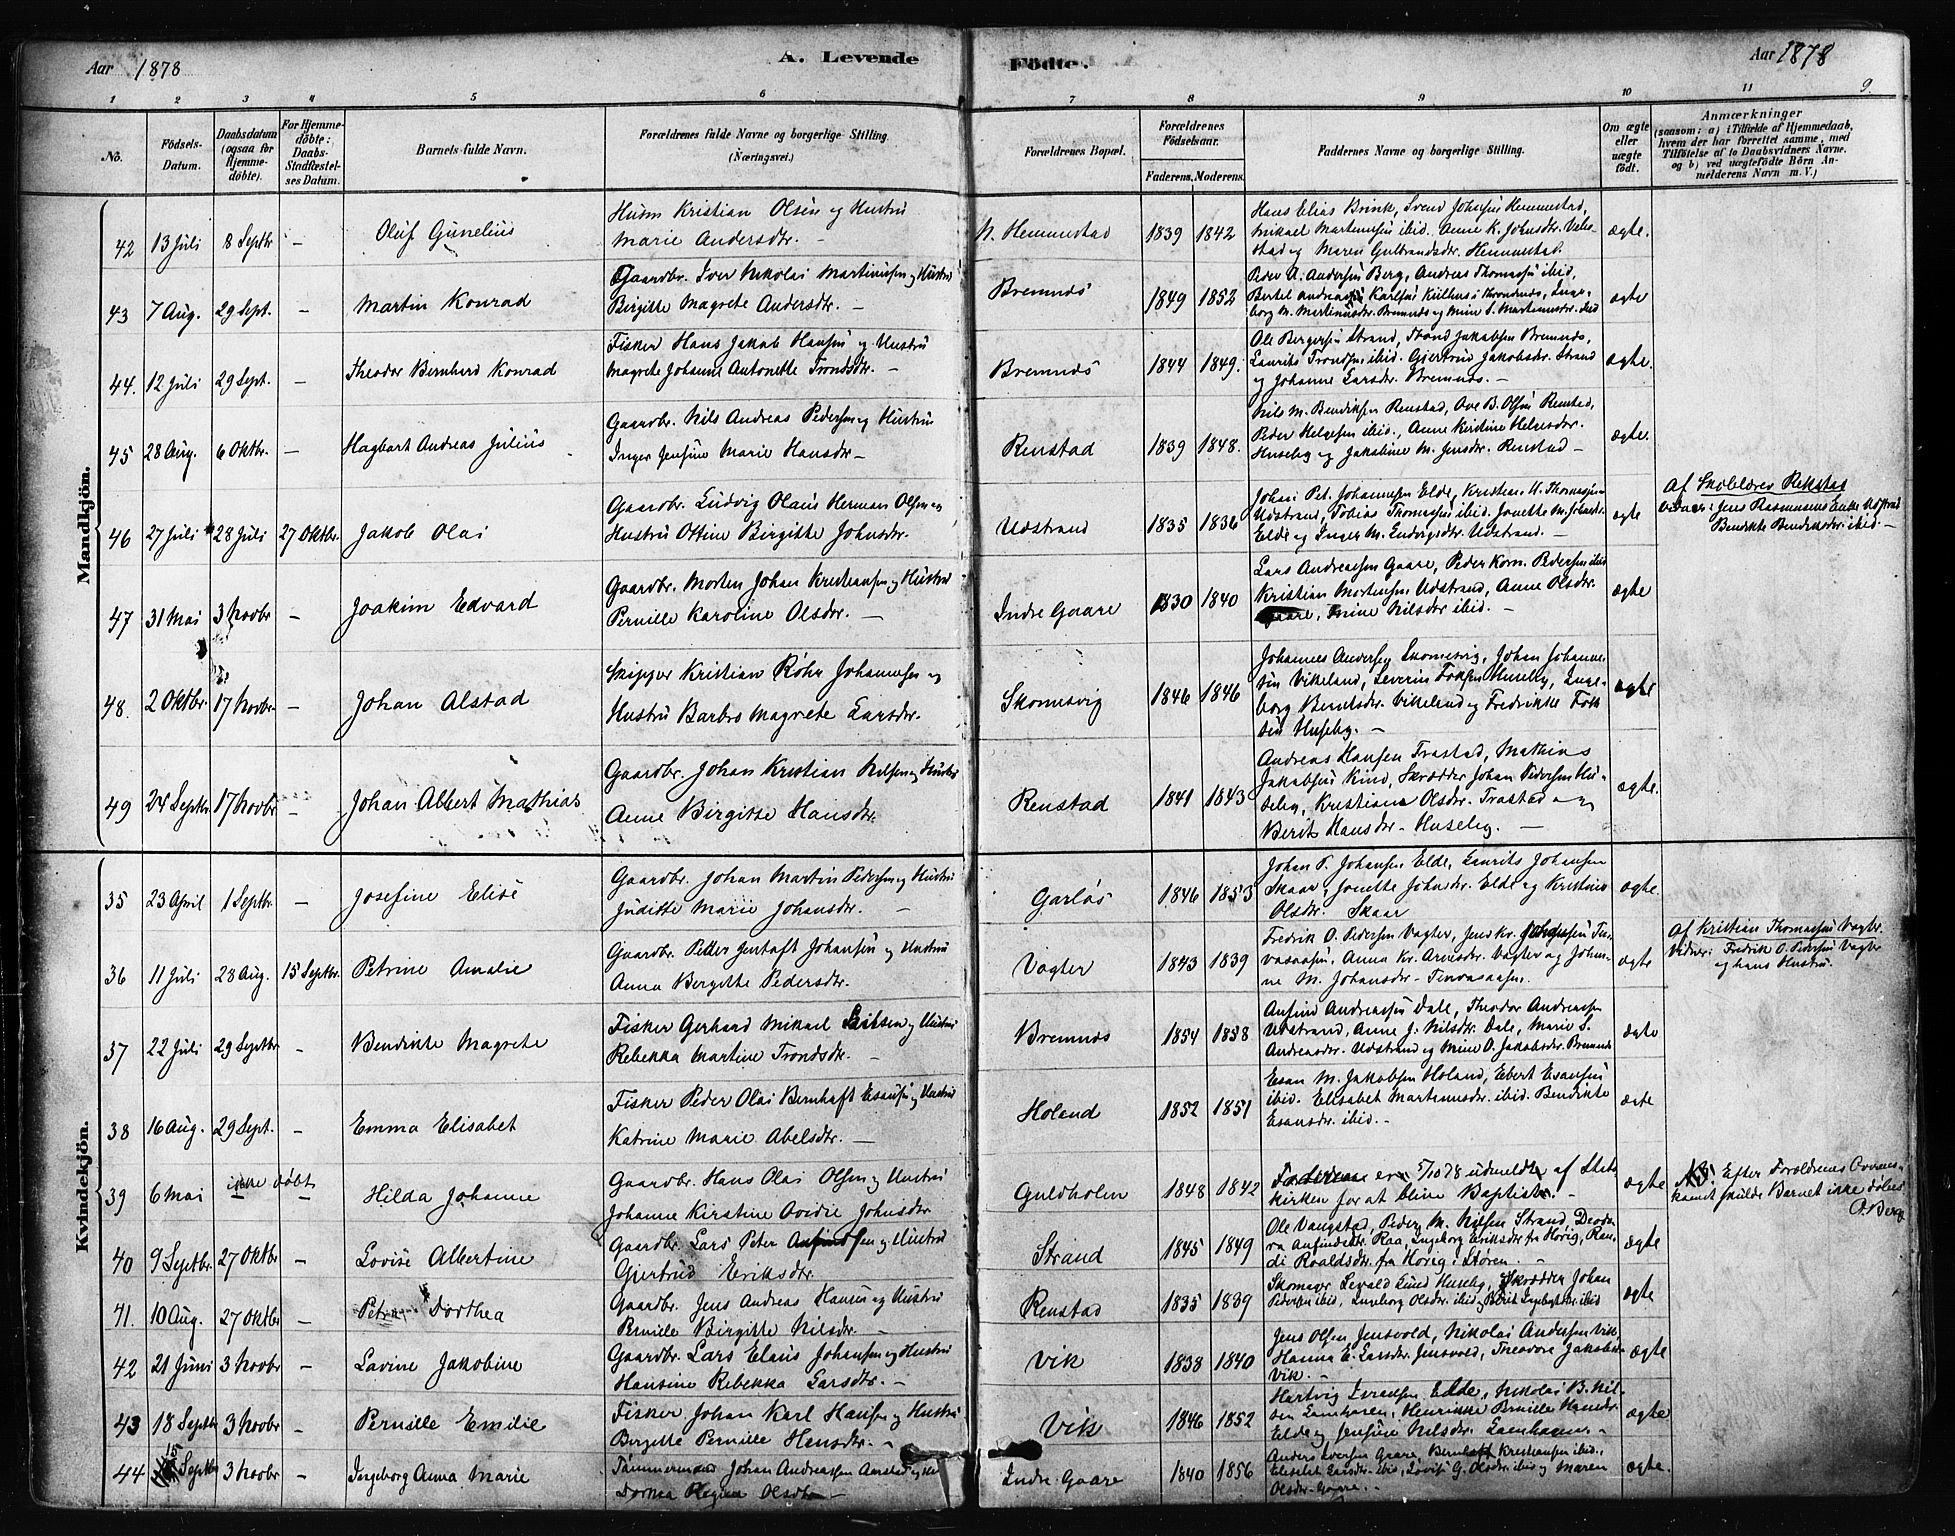 Aar 1878
A. Levende
Födte.
Aar 1878
9.
1 2 3 4 5 6 7 8 9 10 11
No.
Födsels-Datum.
Daabsdatum (ogsaa for Hjemmedöbte).
For Hjemmedöbte: Daabs-Stadfæstelses Datum.
Barnets fulde Navn.
Forældrenes fulde Navne og borgerlige Stilling.
(Næringsvei.)
Forældrenes Bopæl.
Forældrenes Födselsaar.
Faderens. Moderens.
Faddernes Navne og borgerlige Stilling.
Om ægte eller uægte födt.
Anmærkninger
(saasom: a) i Tilfælde af Hjemmedaab, hvem der har forrettet samme, med Tilföielse af to Daabsvidners Navne. og b) ved uægtefödte Börn Anmelderens Navn m. V.)
Mandkjön.
42 13 Juli 8 Septbr – Oluf Gunelius
Husm Kristian Olsen og Hustru
Marie Andersdtr. –
N. Hemmestad 1839 1842
Hans Elias Brink, Svend Johnsen Hemmestad,
Mikael Martinussen ibid. Anne K. Johnsdtr.
og Maren Gulbrandsdr. Hemmestad.
ægte.
43 7 Aug. 29 Sept. – Martin Konrad
Gaardbr. Iver Nikolai Martinussen og Hustru
Birgitte Magrete Andersdtr. –
Bremnes 1849 1852
Peder A. Andersen Berg, Andreas Thomassen ibid,
ægte
44. 12 Juli 29 Sept. – Theodor Bernhard Konrad
Fisker Hans Jakob Hansen og Hustru
Magrete Johanne Antonette Trondsdtr. –
Bremnes 1844 1849.
Ole Bergersen Strand, Trond Jakobsen Bremnes,
Laurits Trondsen ibid. Gjertrud Jakobsdr. Strand
og Johanne Larsdtr. Bremnes. –
ægte.
45 28 Aug. 6 Oktbr. – Hagbart Andreas Julius
Gaardbr. Nils Andreas Pedersen og Hustru
Inger Jensine Marie Hansdtr –
Renstad 1839 1848.
Nils M. Bendiksen Renstad, Ove B. Olsen Renstad,
Peder Helgesen ibid., Anne Kristine Helgesdtr.
Huseby og Jakobine M. Jensdtr. Renstad –
ægte.
46 27 Juli 28 Juli 27 Oktbr. Jakob Olai
Gaardbr. Ludvig Olaus Herman Olsen og
Hustru Ottine Birgitte Johnsdtr.
Udstrand 1835 1836
Johan Pet. Johannesen Elde, Kristian U. Thomassen
Udstrand, Tobias Thomassen ibid. Jonette M. Johnsdr
Elde og Inger M. Ludvigsdtr. Udstrand. –
ægte
Af Skolelærer Rekstad
Vidner: Jens Rasmussens Enke Udstrand
Bendikte Bendiksdr ibid. –
47 31 Mai 3 Novbr – Joakim Edvard
Gaardbr. Morten Johan Kristiansen og Hustru
Pernille Karoline Olsdtr. –
Indre Gaare 1830 1840
Lars Andreassen Gaare, Peder Korn. Pedersen ibid
Kristian Mortensen Udstrand, Anne Olsdtr.
Gaare, Mine Nilsdtr ibid. –
ægte
48. 2 Oktbr. 17 Novbr. – Johan Alstad
Skipper Kristian Röhr Johannesen og
Hustru Barbro Magrete Larsdtr.
Skomesvig 1846 1846
Johannes Andersen Skomesvig, Johan Johanne-
sen Vikeland, Severin Falksen Huseby, Inge-
borg Berntsdtr. Vikeland og Fredrikke Falk
sen Huseby. –
ægte
49 24 Septbr 17 Novbr – Johan Albert Mathias
Gaardbr. Johan Kristian Nilsen og Hustru
Anne Birgitte Hansdtr.
Renstad 1841 1843
Andreas Hansen Trastad, Mathias
Jakobsen Kind, Skrædder Johan Pedersen Hu-
seby, Kristiane Olsdtr. Trastad og
Berit Hansdtr. Huseby. –
ægte.
Kvindekjön.
35 23 April 1 Septbr. – Josefine Elise
Gaardbr. Johan Martin Pedersen og Hustru
Juditte Marie Johansdtr. –
Garlös 1846 1853
Johan P. Johansen Elde, Laurits Johansen
Skaar, Jonette Johnsdtr. Elde og Kristine
Olsdtr. Skaar
ægte.
36 11 Juli 28 Aug. 15 Septbr. Petrine Amalie
Gaardbr. Petter Gustaft Johansen og Hustru
Anna Bergitte Pedersdtr.
Vagter 1843 1839
Fredrik O. Pedersen Vagter, Jens Kr. Johansen
Anna Kr. Arnesdtr. Vagter og Johan-
ne M. Johansdtr.
ægte
Af Kristian Thomassen Vagter
Vidner: Fredrik O. Pedersen Vagter
og hans Hustru.
37 22 Juli 29 Septbr – Bendikte Magrete
Fisker Gerhard Mikael og Hustru
Rebekka Martine Trondsdtr. –
Bremnes 1854 1858
Anfind Andreassen Dale, Theodor Andreassen
Udstrand, Anne J. Nilsdtr. Dale, Marie S.
Andreasdtr. Udstrand og Mine O. Jakobsdtr. Bremnes
ægte
38 16 Aug. 29 Sept. – Emma Elisabet
Fisker Peder Olai Bernhaft Esausen og Hustru
Katrine Marie Abelsdtr. –
Holand 1852 1851
Esau M. Jakobsen Holand, Ebert Esausen
ibid. Elisabet Martinusdtr. ibid. Bendikte
Esausdtr. ibid. –
ægte
39 6 Mai ikke döbt Hilda Johanne
Gaardbr. Hans Olai Olsen og Hustru
Johanne Kirstine Ovidie Johnsdtr
Guldholm 1848 1842
Forældrene er 5/10 78 udmeldt af Stats
kirken for at blive Baptister. –
ægte
NB. Efter Forældrenes Overens-
komst skulde Barnet ikke döbes
O. Berg
40 9 Septbr. 27 Oktbr – Lovise Albertine
Gaardbr. Lars Peter Anfindsen og Hustru
Gjertrud Eriksdtr.
Strand 1845 1849
Ole Vangstad, Peder M. Nilsen Strand, Deode-
ra Anfindsdtr. Raa, Ingeborg Eriksdtr fra Horig, Ran-
di Roaldsdtr. fra Horig i Stören. –
ægte
41. 10 Aug. 27 Oktbr – Petra Dorthea
Gaardbr. Jens Andreas Hansen og Hustru
Pernille Birgitte Nilsdtr. –
Renstad 1835 1839
Skomager Sevald Lund Huseby, Skrædder Johan
Pedersen ibid, Ingeborg Olsdtr. ibid, Berit Ingebrigtsdr. ibid
ægte
42 21 Juni 3 Novbr – Lavine Jakobine
Gaardbr. Lars Elaus Johansen og Hustru
Hansine Rebekka Larsdtr. –
Vik 1838 1840
Jens Olsen Jensvold, Nikolai Andersen Vik,
Hanna E. Larsdtr. Jensvold, Theodore Jakobsdtr
Vik. –
ægte
43 18 Septbr 3 Novbr – Pernille Emilie
Fisker Johan Karl Hansen og Hustru
Birgitte Pernille Hansdtr. –
Vik 1846 1852
Hertvig Elde, Nikolai B. Nil-
sen Henrikke Pernille Hansdtr.
Elde og Jensine Nilsdtr.
ægte
44 15 Septbr 3 Novbr – Ingeborg Anna Marie
Tömmermand Johan Andreassen
Dorthea Regine Olsdtr –
Indre Gaare 1840 1856
Anders Iversen Gaare, Bernhaft Kristiansen ibid.,
Elisabet Larsdtr ibid, Lovise G. Olsdtr. ibid og Maren
Olsdtr. Gaare. –
ægte.